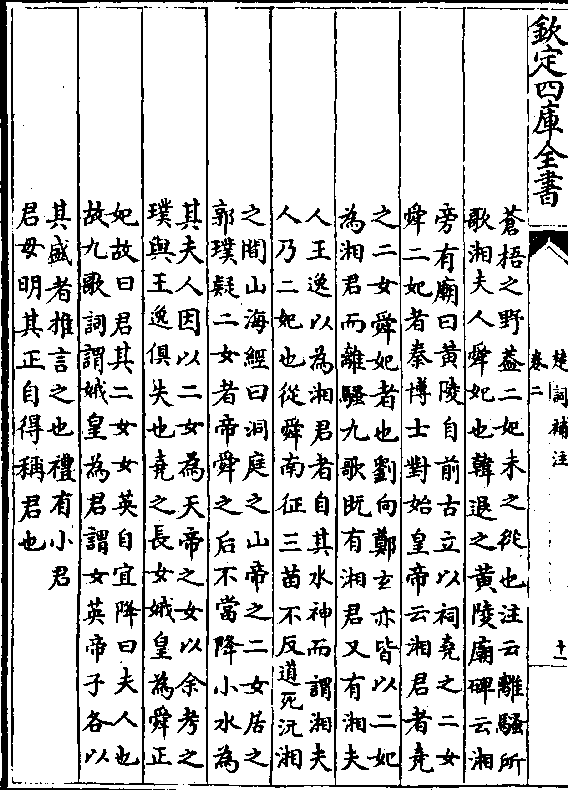 欽定四庫全書
楚詞補注
卷二
十一
蒼梧之野蓋二妃未之從也注云離騷所
歌湘夫人舜妃也韓退之黃陵廟碑云湘
旁有廟曰黃陵自前古立以祠堯之二女
舜二妃者秦博士對始皇帝云湘君者堯
之二女舜妃者也劉向鄭玄亦皆以二妃
為湘君而離騷九歌既有湘君又有湘夫
人王逸以為湘君者自其水神而謂湘夫
人乃二妃也從舜南征三苗不反道死沅湘
之間山海經曰洞庭之山帝之二女居之
郭璞疑二女者帝舜之后不當降小水為
其夫人因以二女為天帝之女以余考之
璞與王逸俱失也堯之長女娥皇為舜正
妃故曰君其二女女英自宜降曰夫人也
故九歌詞謂娥皇為君謂女英帝子各以
其盛者推言之也禮有小君
君母明其正自得稱君也